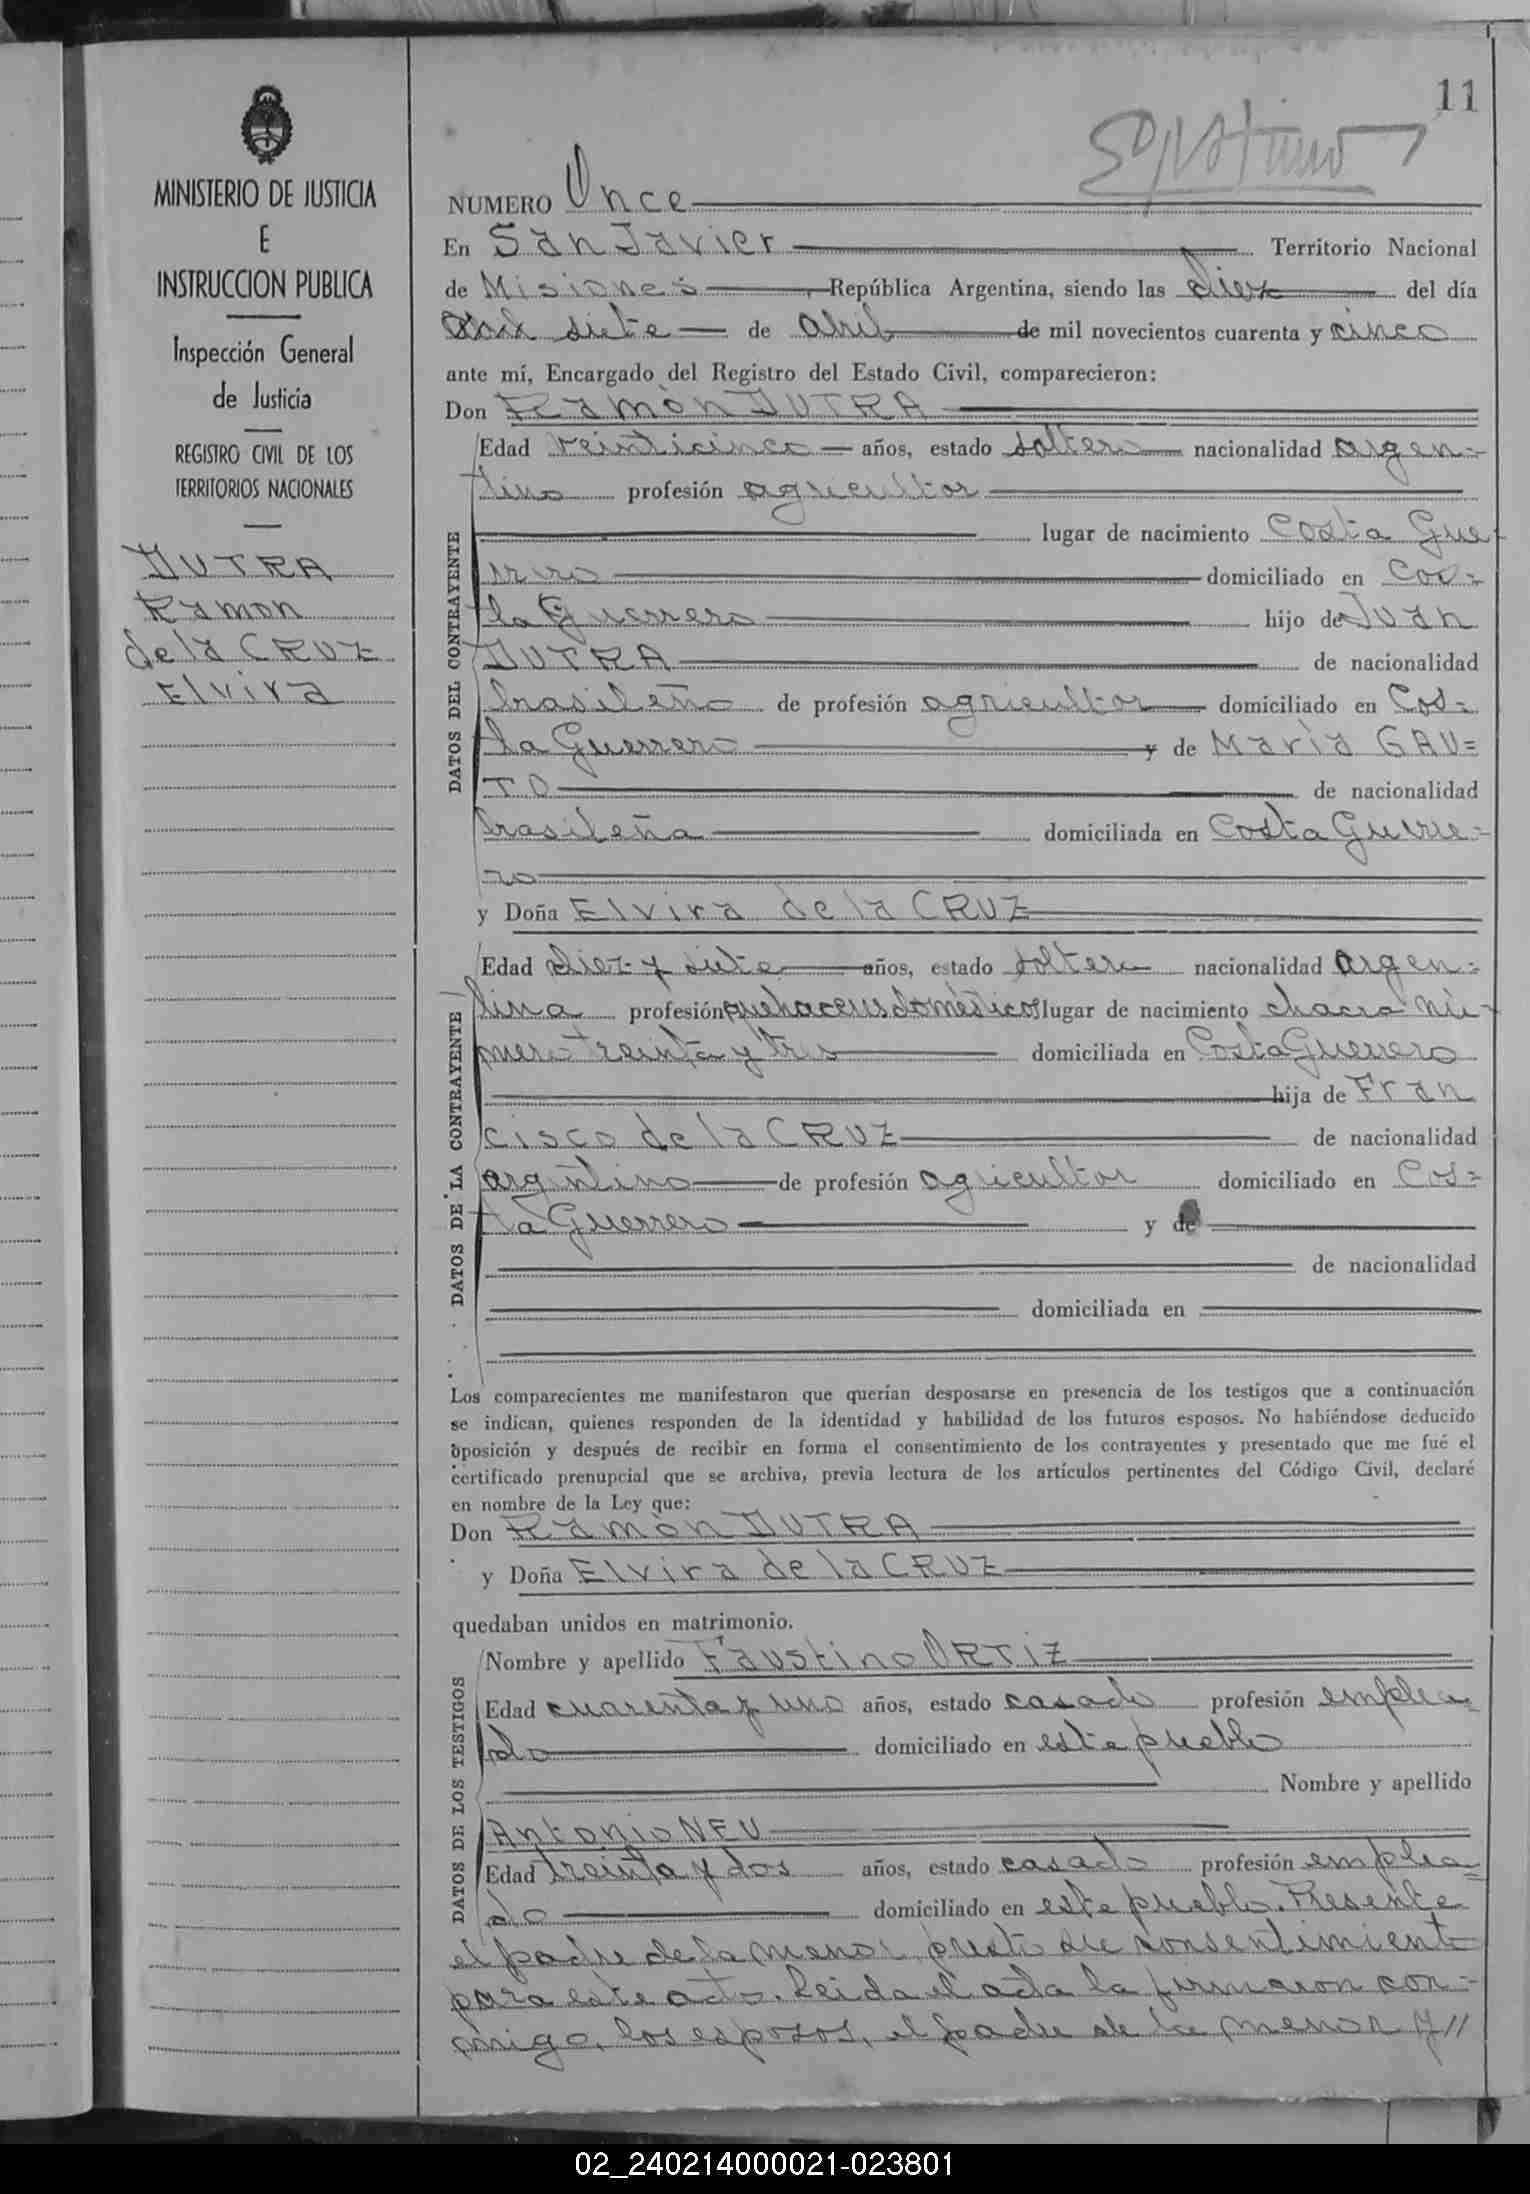 11
MINISTERIO DE JUSTICIA
E
INSTRUCCION PUBLICA
Inspección General
de Justicia
REGISTRO CIVIL DE LOS
TERRITORIOS NACIONALES
DUTRA
Ramon
de la CRUZ
Elvira
NUMERO Once
En San Javier Territorio Nacional
de Misiones República Argentina, siendo las diez del día
siete de abril de mil novecientos cuarenta y cinco
ante mí, Encargado del Registro del Estado Civil, comparecieron:
Don Ramòn DUTRA
DATOS DEL CONTRAYENTE
Edad veinticinco años, estado soltero nacionalidad argen=
tino profesión agricultor
lugar de nacimiento Costa Gue-
rrero domiciliado en Cos=
ta Guerrero hijo de Juan
DUTRA de nacionalidad
brasileño de profesión agricultor domiciliado en Cos=
ta Guerrero y de Marìa GAU=
TO de nacionalidad
brasileña domiciliada en Costa Guerre=
ro
y Doña Elvira de la CRUZ
DATOS DE LA CONTRAYENTE
Edad diez y siete años, estado soltera nacionalidad argen=
tina profesión quehaceres domésticos lugar de nacimiento chacra nú-
mero treinta y tres domiciliada en Costa Guerrero
hija de Fran
cisco de la CRUZ de nacionalidad
argentino de profesión agricultor domiciliado en Cos=
ta Guerrero y de
de nacionalidad
domiciliada en
Los comparecientes me manifestaron que querían desposarse en presencia de los testigos que a continuación
se indican, quienes responden de la identidad y habilidad de los futuros esposos. No habiéndose deducido
oposición y después de recibir en forma el consentimiento de los contrayentes y presentado que me fué el
certificado prenupcial que se archiva, previa lectura de los artículos pertinentes del Código Civil, declaré
en nombre de la Ley que:
Don Ramòn DUTRA
y Doña Elvira de la CRUZ
quedaban unidos en matrimonio.
DATOS DE LOS TESTIGOS
Nombre y apellido Faustino ORTIZ
Edad cuarenta y uno años, estado casado profesión emplea=
do domiciliado en este pueblo
Nombre y apellido
Antonio NEU
Edad treinta y dos años, estado casado profesión emplea=
do domiciliado en este pueblo. Presente
el padre de la menor presto su consentimiento
para este acto. Leida el acta la firmaron con=
migo, los esposos, el padre de la menor y//
02_240214000021-023801